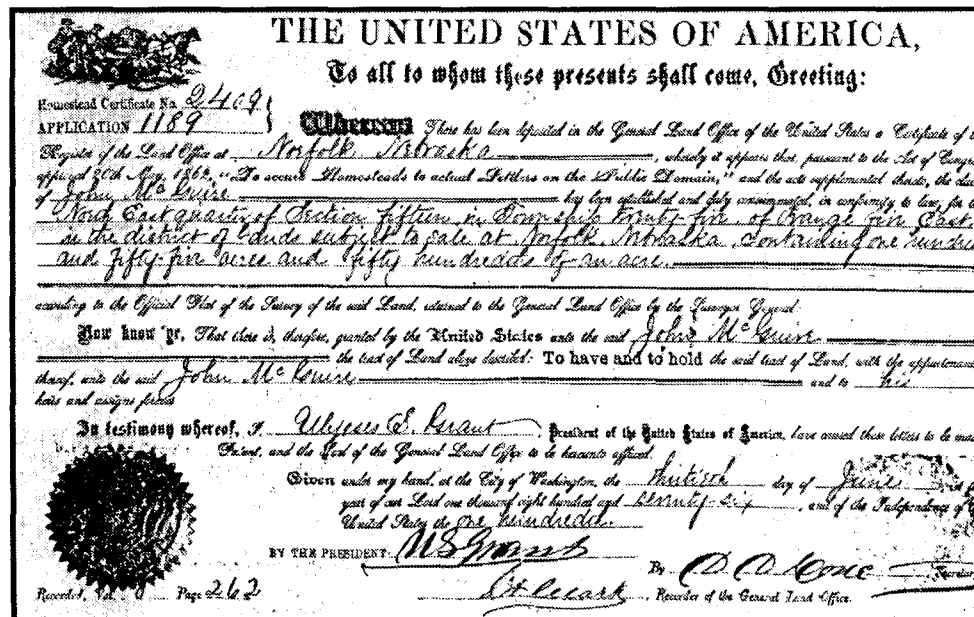 THE UNITED STATES OF AMERICA,
To all to whom these presents shall come, Greeting:
Homestead Certificate No. 2409
APPLICATION 1189
Whereas There has been deposited in the General Land Office of the United States a Certificate of the
Register of the Land Office at Norfolk, Nebraska, whereby it appears that, pursuant to the Act of Congress
approved 20th May, 1862, "To secure Homesteads to actual Settlers on the Public Domain," and the acts supplemental thereto, the claim
of John McGuire has been established and duly consummated, in conformity to law, for the
North East quarter of Section fifteen in Township twenty five of Range five East
in the district of Lands subject to sale at Norfolk, Nebraska, containing one hundred
and fifty-five acres and fifty hundredths of an acre.
according to the Official Plat of the Survey of the said Land, returned to the General Land Office by the Surveyor General.
Now know ye, That there is, therefore, granted by the United States unto the said John McGuire
the tract of Land above described: To have and to hold the said tract of Land, with the appurtenances
thereof, unto the said John McGuire and to his
heirs and assigns forever.
In testimony whereof, I, Ulysses S. Grant, President of the United States of America, have caused these letters to be made
Patent, and the Seal of the General Land Office to be hereunto affixed.
Given under my hand, at the City of Washington, the thirtieth day of June
year of our Lord one thousand eight hundred and seventy-six, and of the Independence of the
United States the one hundredth.
BY THE PRESIDENT: U.S. Grant
By D. D. Cone Secretary
Recorder of the General Land Office.
Recorded, Vol. Page 262